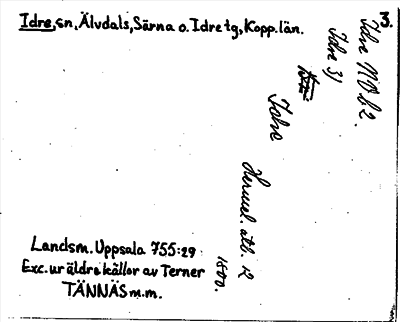 Idre, sn, Älvdals, Särna o. Idre tg, Kopp. län.
3.
Idre NO b2.
Idre 3)
Idre
Hermel. atl. R
1800.
Landsm. Uppsala 755:29
Exc. ur äldre källor av Terner
TÄNNÄS m.m.